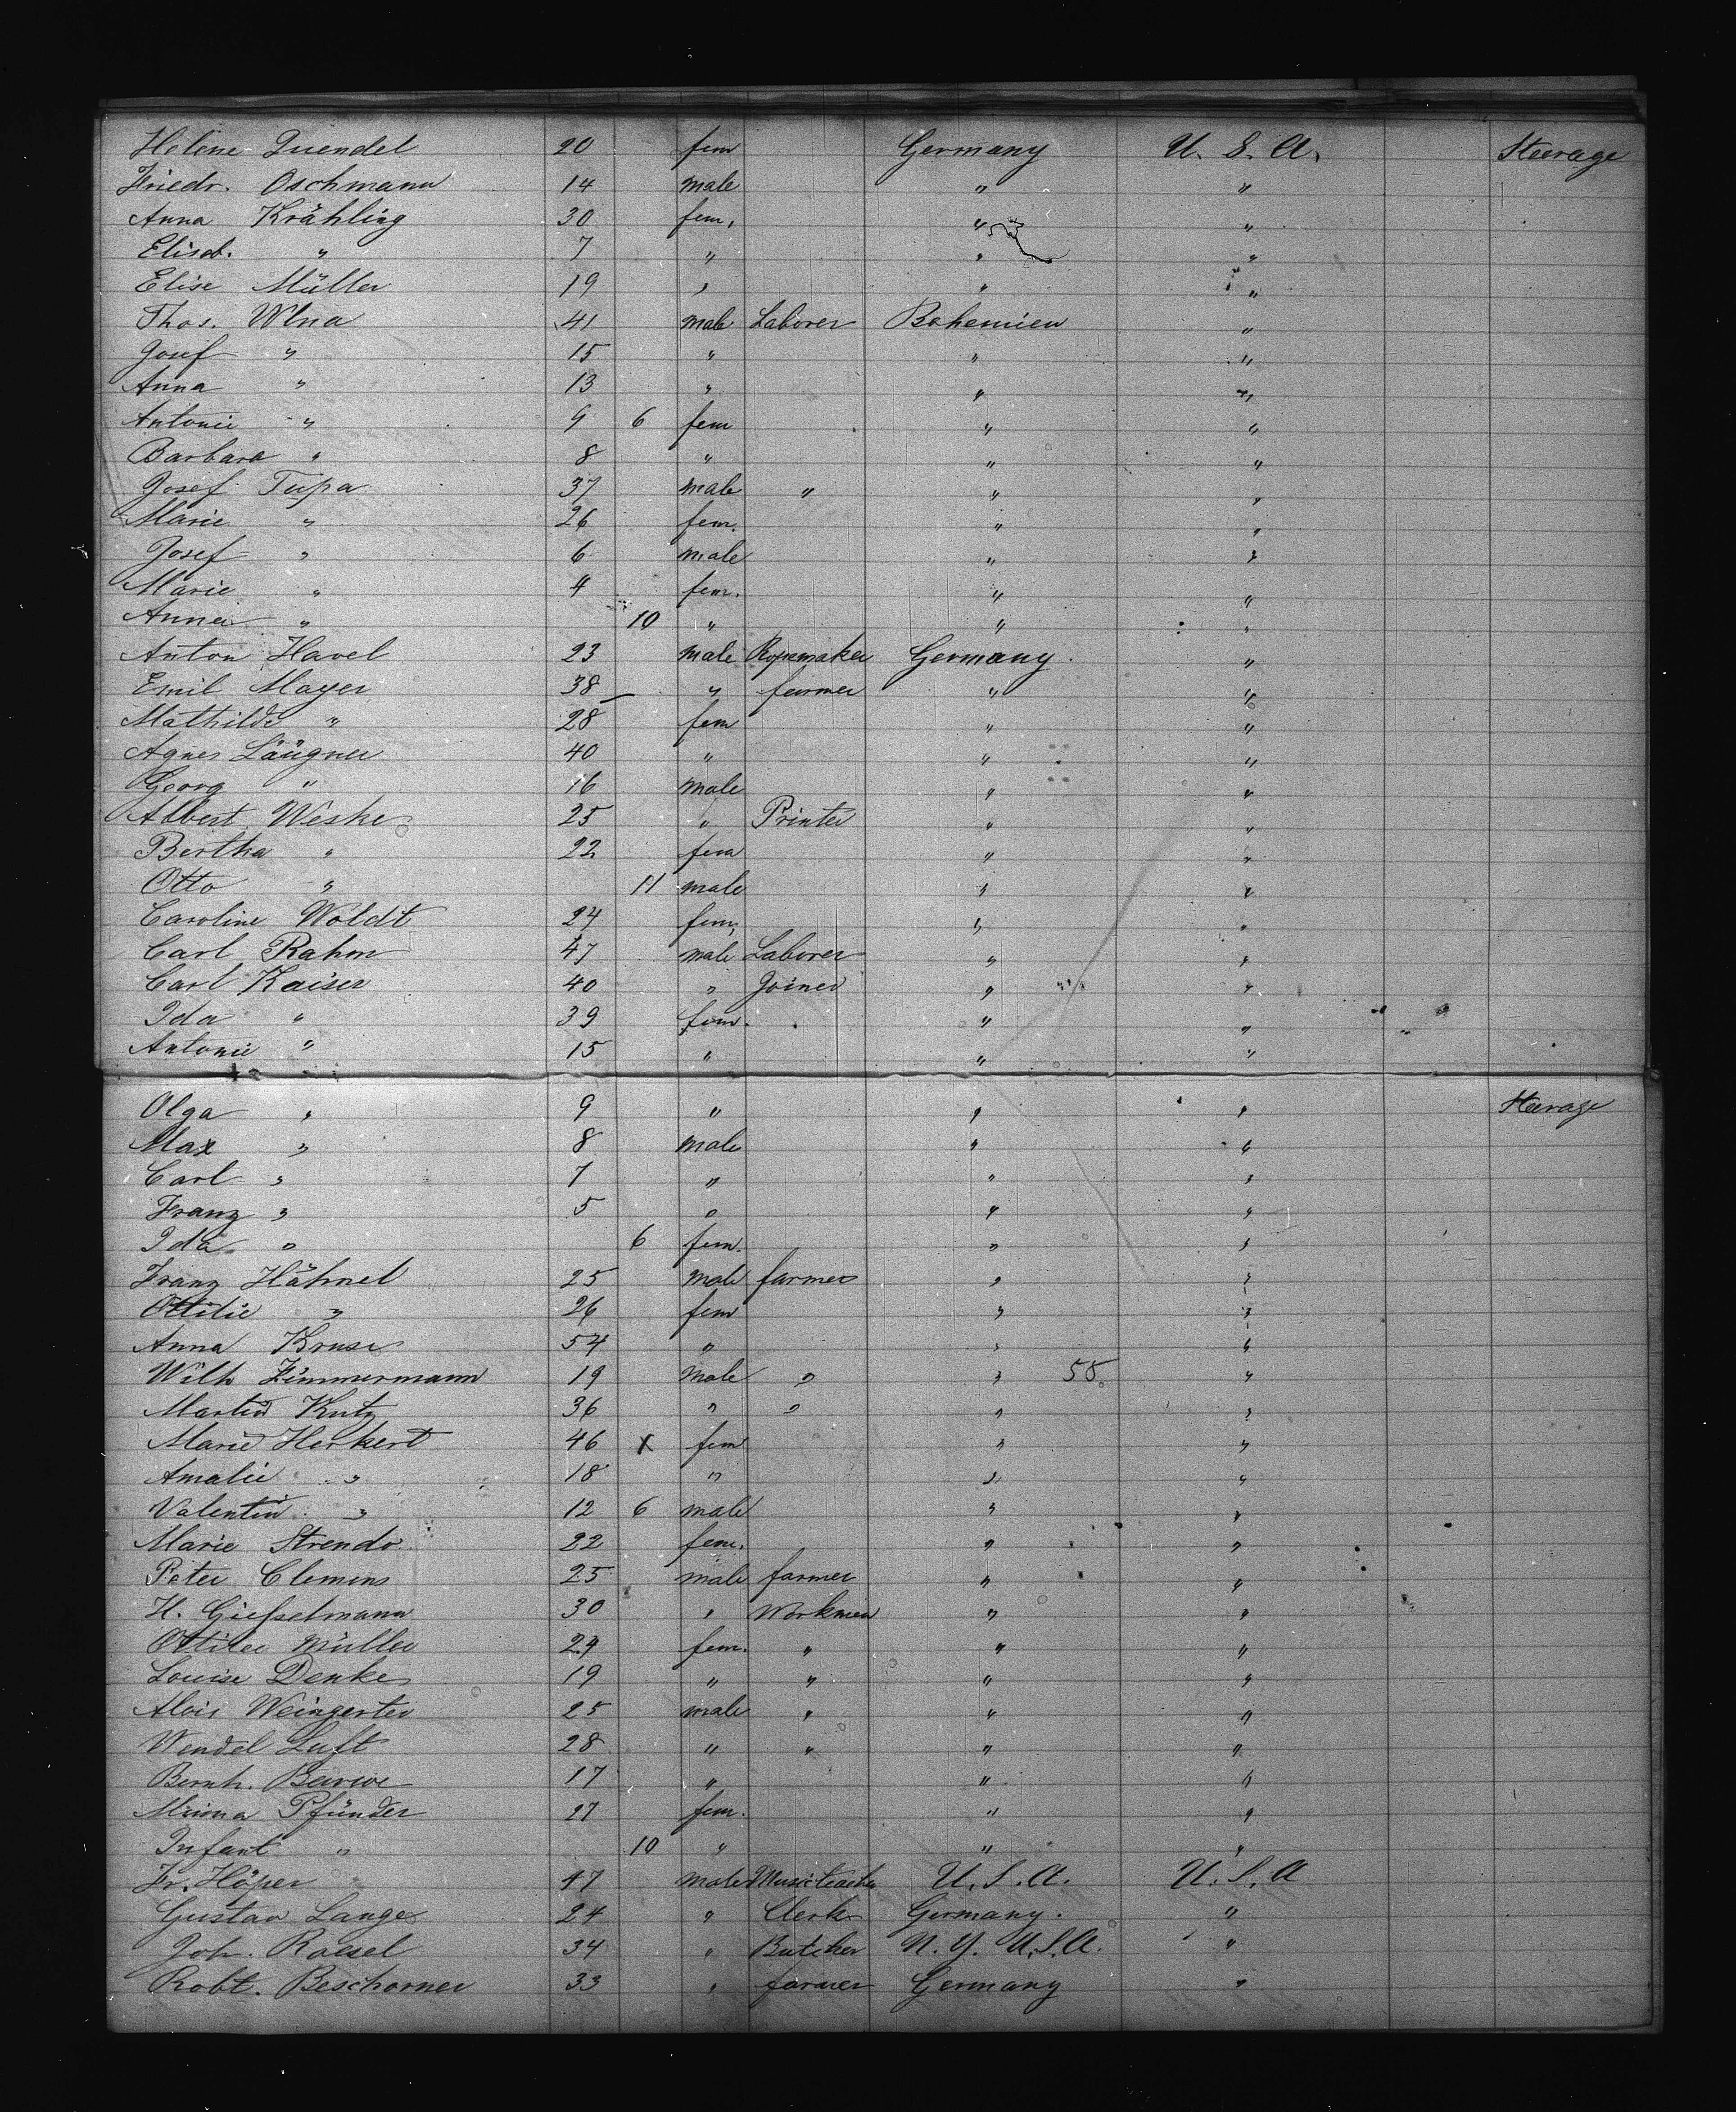 Helene Quendel 20 fem Germany U. S. A. Steerage
Friedr. Oschmann 14 male " "
Anna Krähling 30 fem. " "
Elisab. " 7 " " "
Elise Müller 19 " " "
Thos. Wlna 41 male Laborer Bohemien "
Josef " 15 " " "
Anna " 13 " " "
Antonie " 9 6 fem " "
Barbara " 8 " " "
Josef Tupa 37 male " " "
Marie " 26 fem. " "
Josef " 6 male " "
Marie " 4 fem. " "
Anna " 10 " " "
Anton Havel 23 male Ropemaker Germany. "
Emil Mayer 38 " farmer " "
Mathilde " 28 fem " "
Agnes Läugner 40 " " "
Georg " 16 male " "
Albert Weske 25 " Printer " "
Bertha " 22 fem " "
Otto " 11 male " "
Caroline Woldt 24 fem, " "
Carl Rahm 47 male Laborer " "
Carl Kaiser 40 " Joiner " "
Ida " 39 fem. " "
Antonie " 15 " " "
Olga " 9 " " " Steerage
Max " 8 male " "
Carl " 7 " " "
Franz " 5 " " "
Ida " 6 fem. " "
Franz Hähnel 25 male farmer " "
Ottilie " 26 fem " "
Anna Kruse 54 " " "
Wilh Zimmermann 19 male " " 58 "
Martin Kutz 36 " " " "
Marie Herkert 46 x fem " "
Amalie " 18 " " "
Valentin " 12 6 male " "
Marie Strendo 22 fem. " "
Peter Clemens 25 male farmer " "
H. Gießelmann 30 " Workmen " "
Ottilie Müller 24 fem. " " "
Louise Denke 19 " " " "
Alois Weingerter 25 male " " "
Wendel Luft 28 " " " "
Bernh. 17 " " "
Minna Pfünder 27 fem. " "
Infant " 10 " " "
Fr. Höper 47 male Musicteacher U. S. A. U. S. A
Gustav Lange 24 " Clerk Germany. "
Joh. Roesel 34 " Butcher N. Y. U. S. A. "
Robt. Beschorner 33 " farmer Germany "